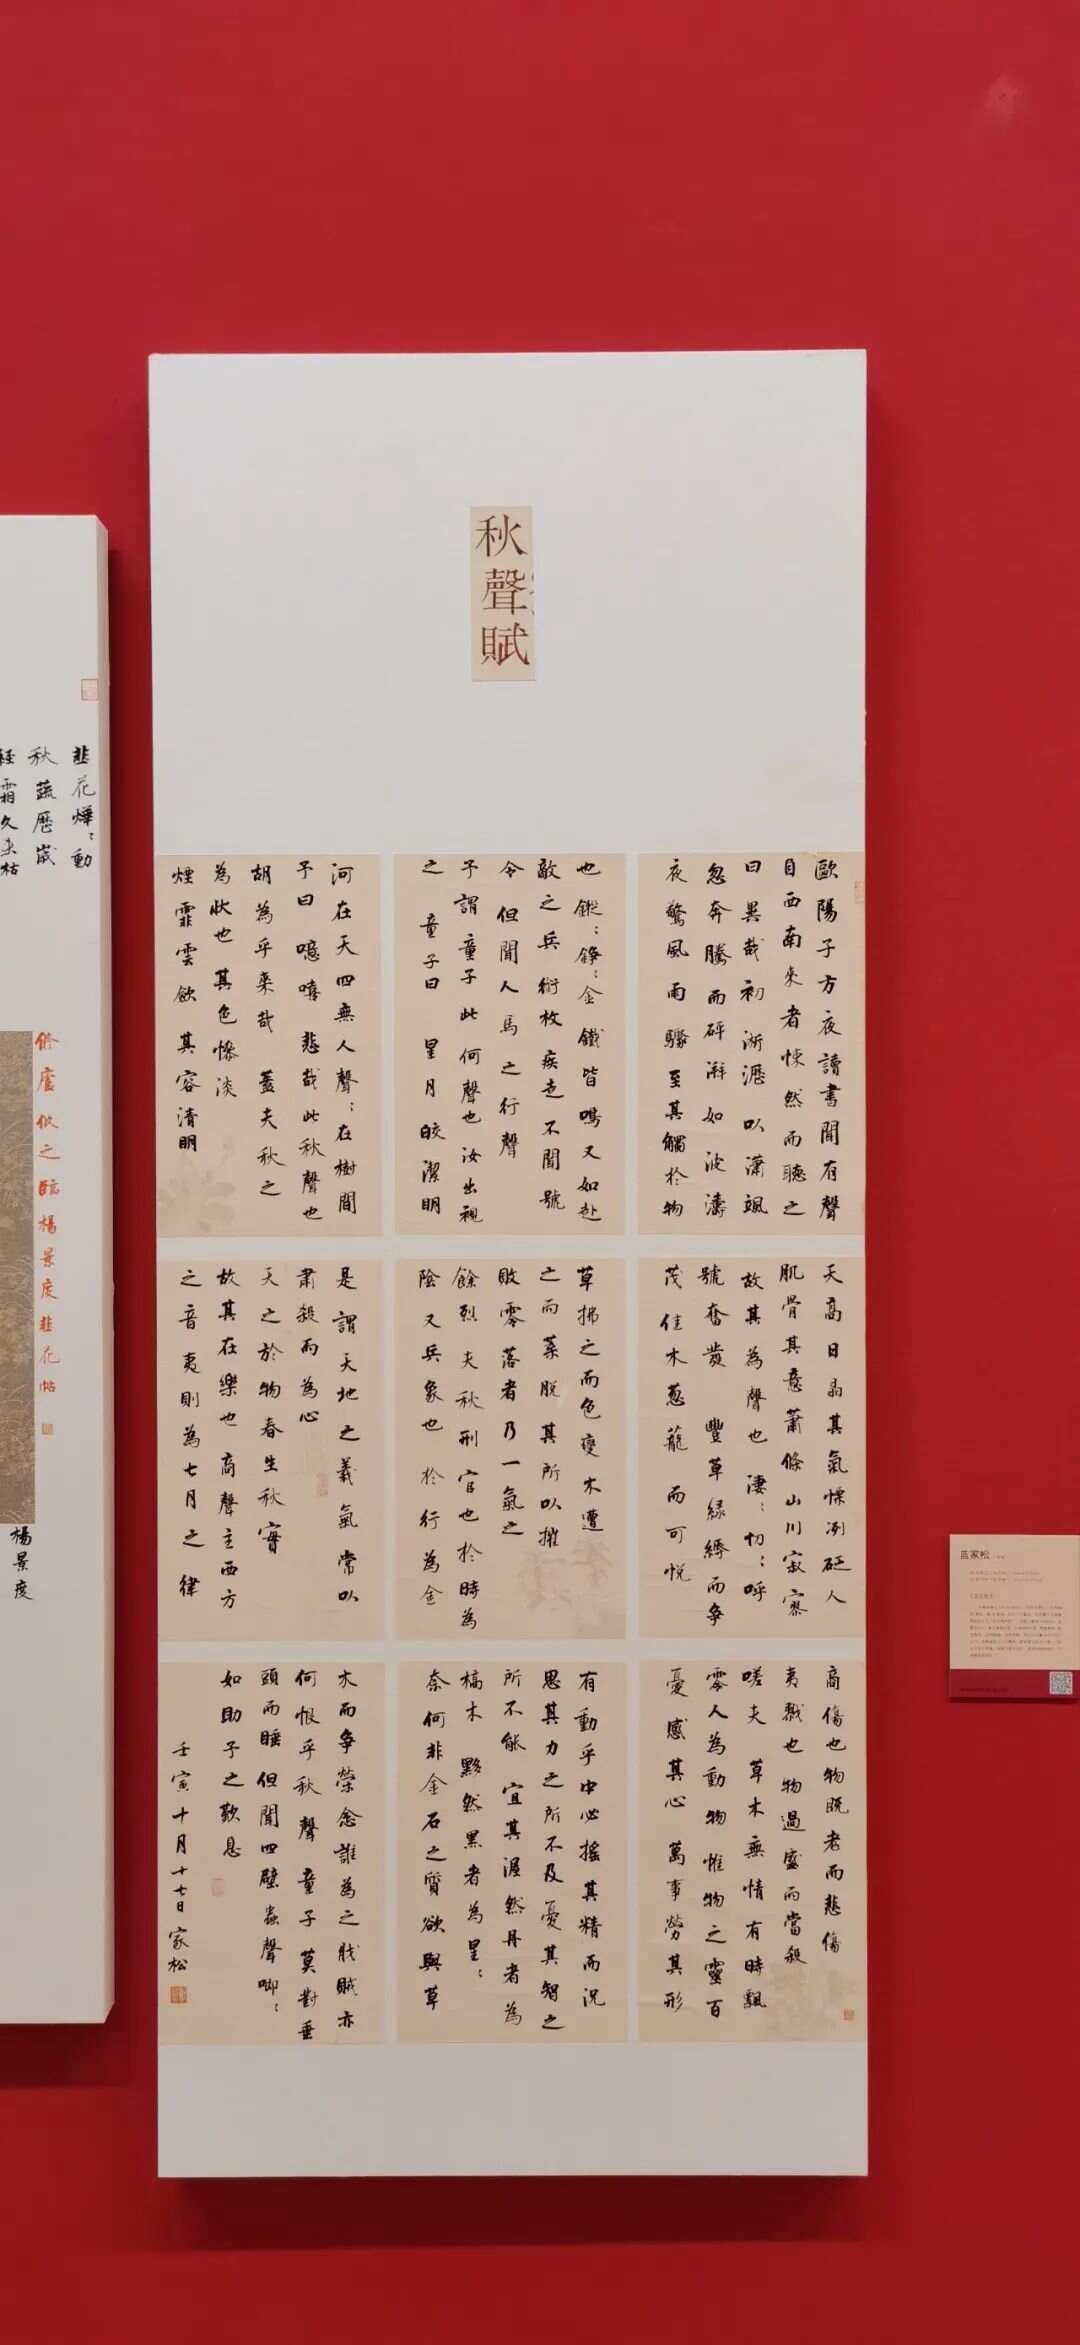 秋聲賦
歐陽子方夜讀書聞有聲
自西南來者悚然而聽之
曰異哉初淅瀝以瀟颯
忽奔騰而砰湃如波濤
夜驚風雨驟至其觸於物
也鏦:錚:金鐵皆鳴又如赴
敵之兵銜枚疾走不聞號
令但聞人馬之行聲
予謂童子此何聲也汝出視
之 童子曰 星月皎潔明
河在天四無人聲:在樹間
予曰噫嘻悲哉此秋聲也
胡為乎來哉 蓋夫秋之
為狀也其色慘淡
煙霏雲斂 其容清明
天高日晶其氣慄冽砭人
肌骨其意蕭條山川寂寥
故其為聲也 淒:切:呼
號奮發 豐草綠縟而爭
茂佳木蔥蘢 而可悅
草拂之而色變木遭
之而葉脫其所以摧
敗零落者乃一氣之
餘烈 夫秋刑官也於時為
陰又兵象也 於行為金
是謂天地之義氣常以
肅殺而為心
天之於物春生秋實
故其在樂也商聲主西方
之音夷則為七月之律
商傷也物既老而悲傷
夷戮也物過盛而當殺
嗟夫 草木無情有時飄
零人為動物惟物之靈百
憂感其心 萬事勞其形
有動乎中必搖其精而況
思其力之所不及憂其智之
所不能 宜其渥然丹者為
槁木 黟然黑者為星:
奈何非金石之質欲與草
木而爭榮念誰為之戕賊亦
何恨乎秋聲 童子莫對垂
頭而睡但聞四壁蟲聲唧:
如助予之歎息
壬寅十月十七日家松
韭花燁:動
秋蔬歷歲
經霜久未枯
之臨楊景度韭花帖
楊景度
家松